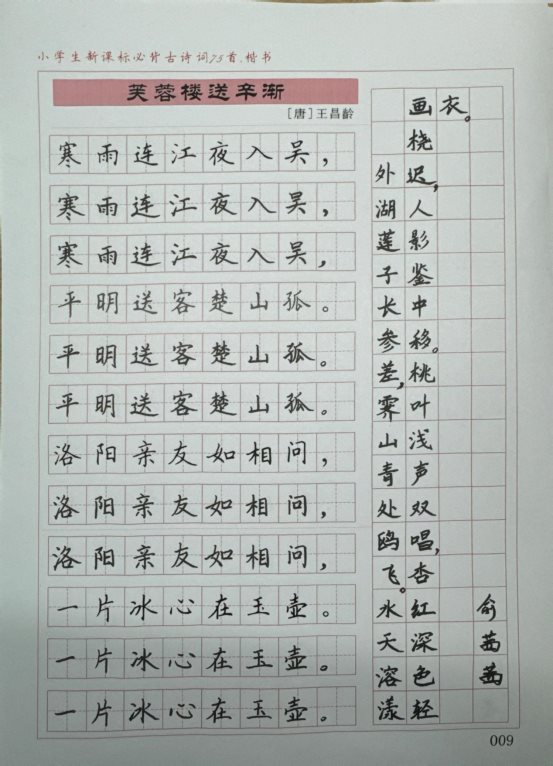 小学生新课标必背古诗词75首.楷书
芙蓉楼送辛渐
[唐]王昌龄
寒雨连江夜入吴，
寒雨连江夜入吴，
寒雨连江夜入吴，
平明送客楚山孤。
平明送客楚山孤。
平明送客楚山孤。
洛阳亲友如相问，
洛阳亲友如相问，
洛阳亲友如相问，
一片冰心在玉壶。
一片冰心在玉壶。
一片冰心在玉壶。
外湖莲子长参差，霁山青处鸥飞。水天溶漾
画桡迟，人影鉴中移。桃叶浅声双唱，杏红深色轻
衣。
俞茜茜
009